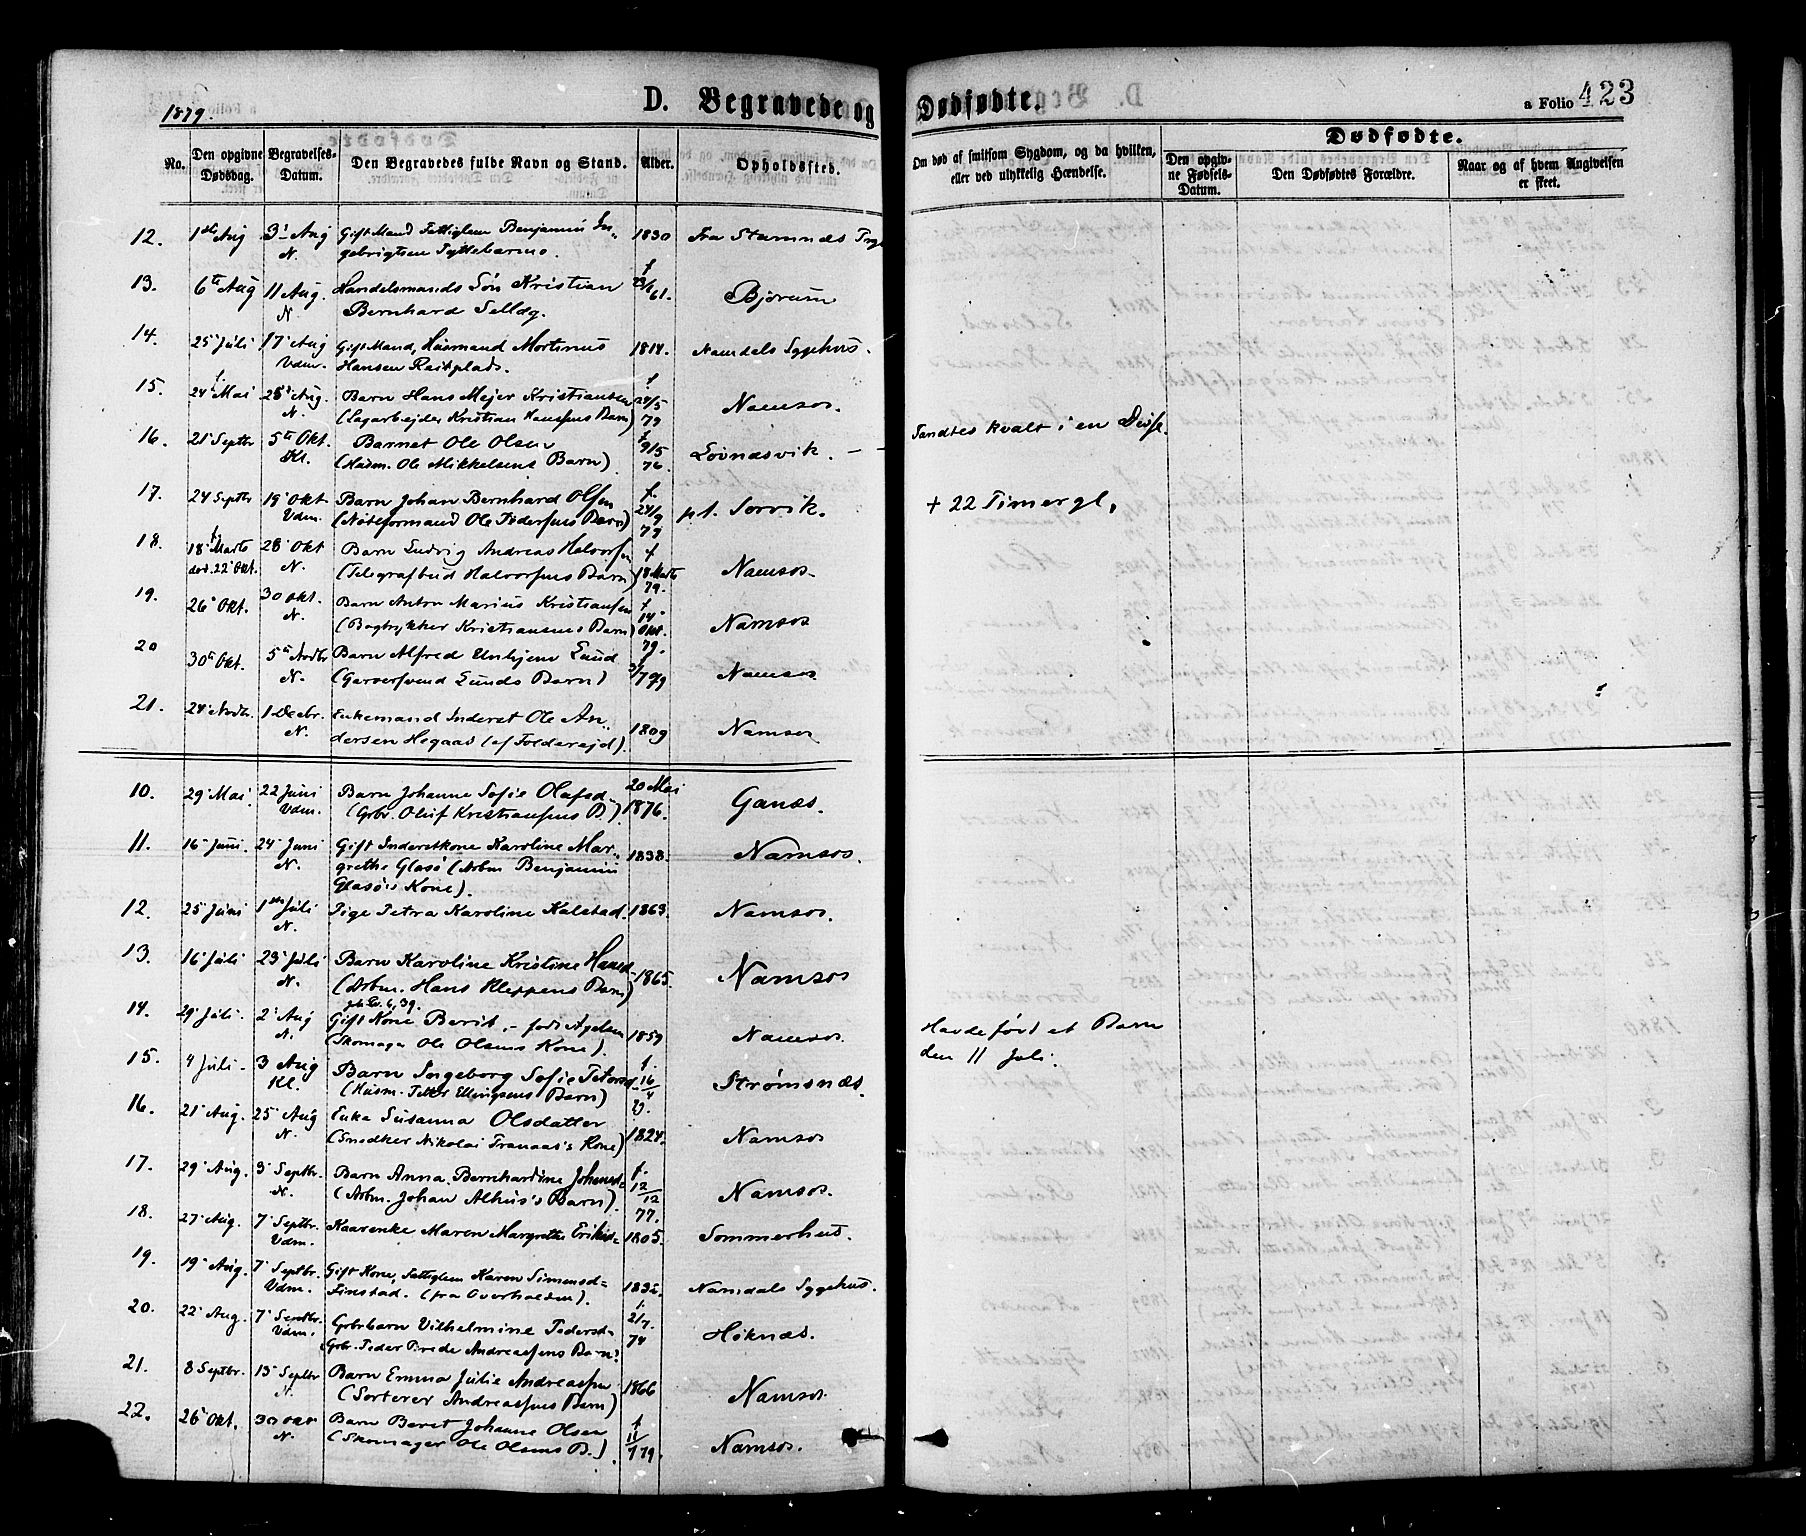 1879.
D. Begravede og Dødfødte.
a Folio 423
No.
Den opgivne Dødsdag.
Begravelses-Datum.
Den Begravedes fulde Navn og Stand.
Alder.
Opholdssted.
Om død af smitsom Sygdom, og da hvilken, eller ved ulykkelig Hændelse.
Dødfødte.
Den opgivne Fødsels-Datum.
Den Dødfødtes Forældre.
Naar og af hvem Angivelsen er skeet.
12. 1ste Aug 3' Aug Gift Mand Fattiglem Benjamin In- 1830 Fra Stamnæs
N. gebrigtsen
13. 6te Aug 11 Aug. Handelsmands Søn Kristian 61. Bjørum
N Bernhard Sellæg.
14. 25' Juli 17' Aug Gift Mand, Husmand Mortinus 1814. Namdals Sygehus.
Vdm. Hansen Raitplads.
15. 24' Mai 25' Aug. Barn Hans Mejer Kristiansen f. 24/5 79 Namsos.
N. (Sagarbejder Kristian Hansens Barn)
16. 21' Septbr 5te Okt. Barnet Ole Olsen f 9/5 76. Løvnæsvik. Fandtes kvalt i en
Kl. (Husm. Ole Mikkelsens Barn)
17. 24 Septbr 19' Okt Barn Johan Bernhard Olsen f. 24/9 79 pt. Sørvik. + 22 Timer gl.
Vdm. (Noteformand Ole Pedersens Barn)
18. f 18' Marts 28' Okt Barn Ludvig Andreas Halvorsen f 18 Marts 79. Namsos
død. 22' Okt. N. (Telegrafbud Halvorsens Barn)
19. 26' Okt. 30 Okt. Barn Anton Marius Kristiansen f 14. Okt. 79. Namsos
N. (Bogtrykker Kristiansens Barn)
20 30te Okt. 5te Novbr Barn Alfred Unhjem Lund 79 Namsos
N. (Garversvend Lunds Barn)
21. 24' Novbr. 1 Decbr. Enkemand Inderst Ole An- 1809 Namsos
N. dersen Hegaas (af Foldereid).
10. 29' Mai 22 Juni Barn Johanne Sofie Olafsd. 20 Mai 1876. Ganæs.
Vdm. (Gbr. Oluf Kristiansens B.)
11. 16' Juni. 24' Juni Gift Inderstkone Karoline Mar- 1838. Namsos.
N. grethe Glasø (Arbm Benjamin
Glasø's Kone).
12. 25' Juni 1ste Juli Pige Petra Karoline Kalstad. 1863. Namsos.
N.
13. 16' Juli 23' Juli Barn Karoline Kristine Hansd. 1865. Namsos
N. (Arbm. Hans Kleppens Barn)
14. 29' Juli 2' Aug Gift Kone Berit, født Agelsen 1859 Namsos. Havde født et Barn
N. (Skomager Ole Olsens Kone). den 11 Juli.
15. 4 Juli 3 Aug Barn Ingeborg Sofie Petersd. f. 16/4 Strømsnæs.
Kl. (Husm. Petter Ellingsens Barn)
16. 21' Aug. 25' Aug Enke Susanna Olsdatter 1824. Namsos
N. (Snedker Nikolai Tranaas's Kone)
17. 29' Aug. 3' Septbr. Barn Anna Bernhardine Johansd. f. 12/12 77. Namsos.
N. (Arbm. Johan Alhus's Barn).
18. 27' Aug. 7' Septbr. Kaarenke Maren Margrethe Eriksd. 1805. Sommerhus.
Vdm.
19. 19' Aug. 7' Septbr. Gift Kone, Fattiglem Karen Simonsd. 1832. Namdals Sygehus.
Vdm. Finstad. (fra Overhalden).
20. 22' Aug. 7' Septbr. Gbrbarn Vilhelmine Pedersd. f. 21/7. 74 Høknæs.
Vdm. Gbr. Peder Brede Andreassens Barn.
21. 8 Septbr. 13' Septbr Barn Emma Julie Andreassen 1866 Namsos
N. (Sorterer Andreassens Barn)
22. 26' Okt. 30 Okt Barn Beret Johanne Olsen f 11/7 79. Namsos.
N. (Skomager Ole Olsens B.)